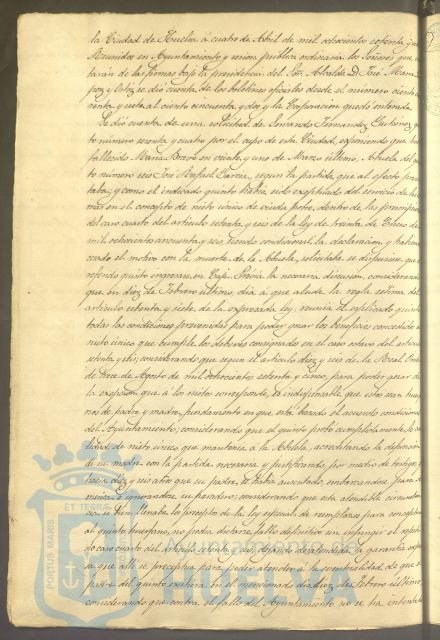 la Ciudad de Huelva a cuatro de Abril de mil ochocientos setenta y
Reunidos en Ayuntamiento y sesion publica ordinaria los Señores que
tarán de las firmas bajo la presidencia del Sor. Alcalde D. José
se dió cuenta de los boletines oficiales desde el número ciento
venta y siete al ciento cincuenta y dos y la Corporacion quedó enterada.
Se dió cuenta de una solicitud de Fernando Fernandez Gutierrez
to número sesenta y cuatro por el cupo de esta Ciudad, exponiendo que
fallecido Maria Bravo en veinte y uno de Marzo último, Abuela del
to número seis José Rafael segun la partida que al efecto
taba; y como el indicado quinto habia sido exceptuado del servicio de las
mas en el concepto de nieto único de viuda pobre, dentro de las
del caso cuarto del artículo setenta y seis de la ley de treinta de Enero de
mil ochocientos cincuenta y seis, siendo condicional la declaracion, y habiendo
cesado el motivo con la muerte de la Abuela, solicitaba se dispusiese que el
referido quinto ingresara en Caja. Prévia la necesaria discusion, considerando
que en diez de Febrero último, dia á que alude la regla sétima del
artículo setenta y siete de la expresada ley, reunia el explicado quinto
todas las condiciones prevenidas para poder gozar los beneficios concedidos al
nieto único que cumple los deberes consignados en el caso octavo del artículo
setenta y seis; considerando que segun el artículo diez y seis de la Real Orden
de trece de Agosto de mil ochocientos setenta y cinco, para poder gozar de
la exencion que á los nietos corresponde, es indispensable que estos sean
nos de padre y madre, fundamento en que está basado el acuerdo condicional
del Ayuntamiento; considerando que el quinto probó cumplidamente la
lidad de nieto único que mantenia á la Abuela, acreditando la defuncion
de su madre con la partida necesaria y justificando por medio de testigos,
hacia diez y seis años que su padre se habia ausentado, embarcandose
mente é ignorandose su paradero; considerando que esta atendible circunstan
cia si bien llenaba los preceptos de la ley especial de reemplazos para conceptuar
al quinto huerfano, no podia dictarse fallo definitivo sin infringir el
do caso cuarto del artículo setenta y seis, dejando desatendida la garantia
sa que allí se preceptua para poder atender á la eventualidad de que el
padre del quinto existiera en el mencionado dia diez de Febrero último;
considerando que contra el fallo del Ayuntamiento no se ha intentado
PORTUS MARIS
ET TERRAE
Ayuntamiento de
HUELVA